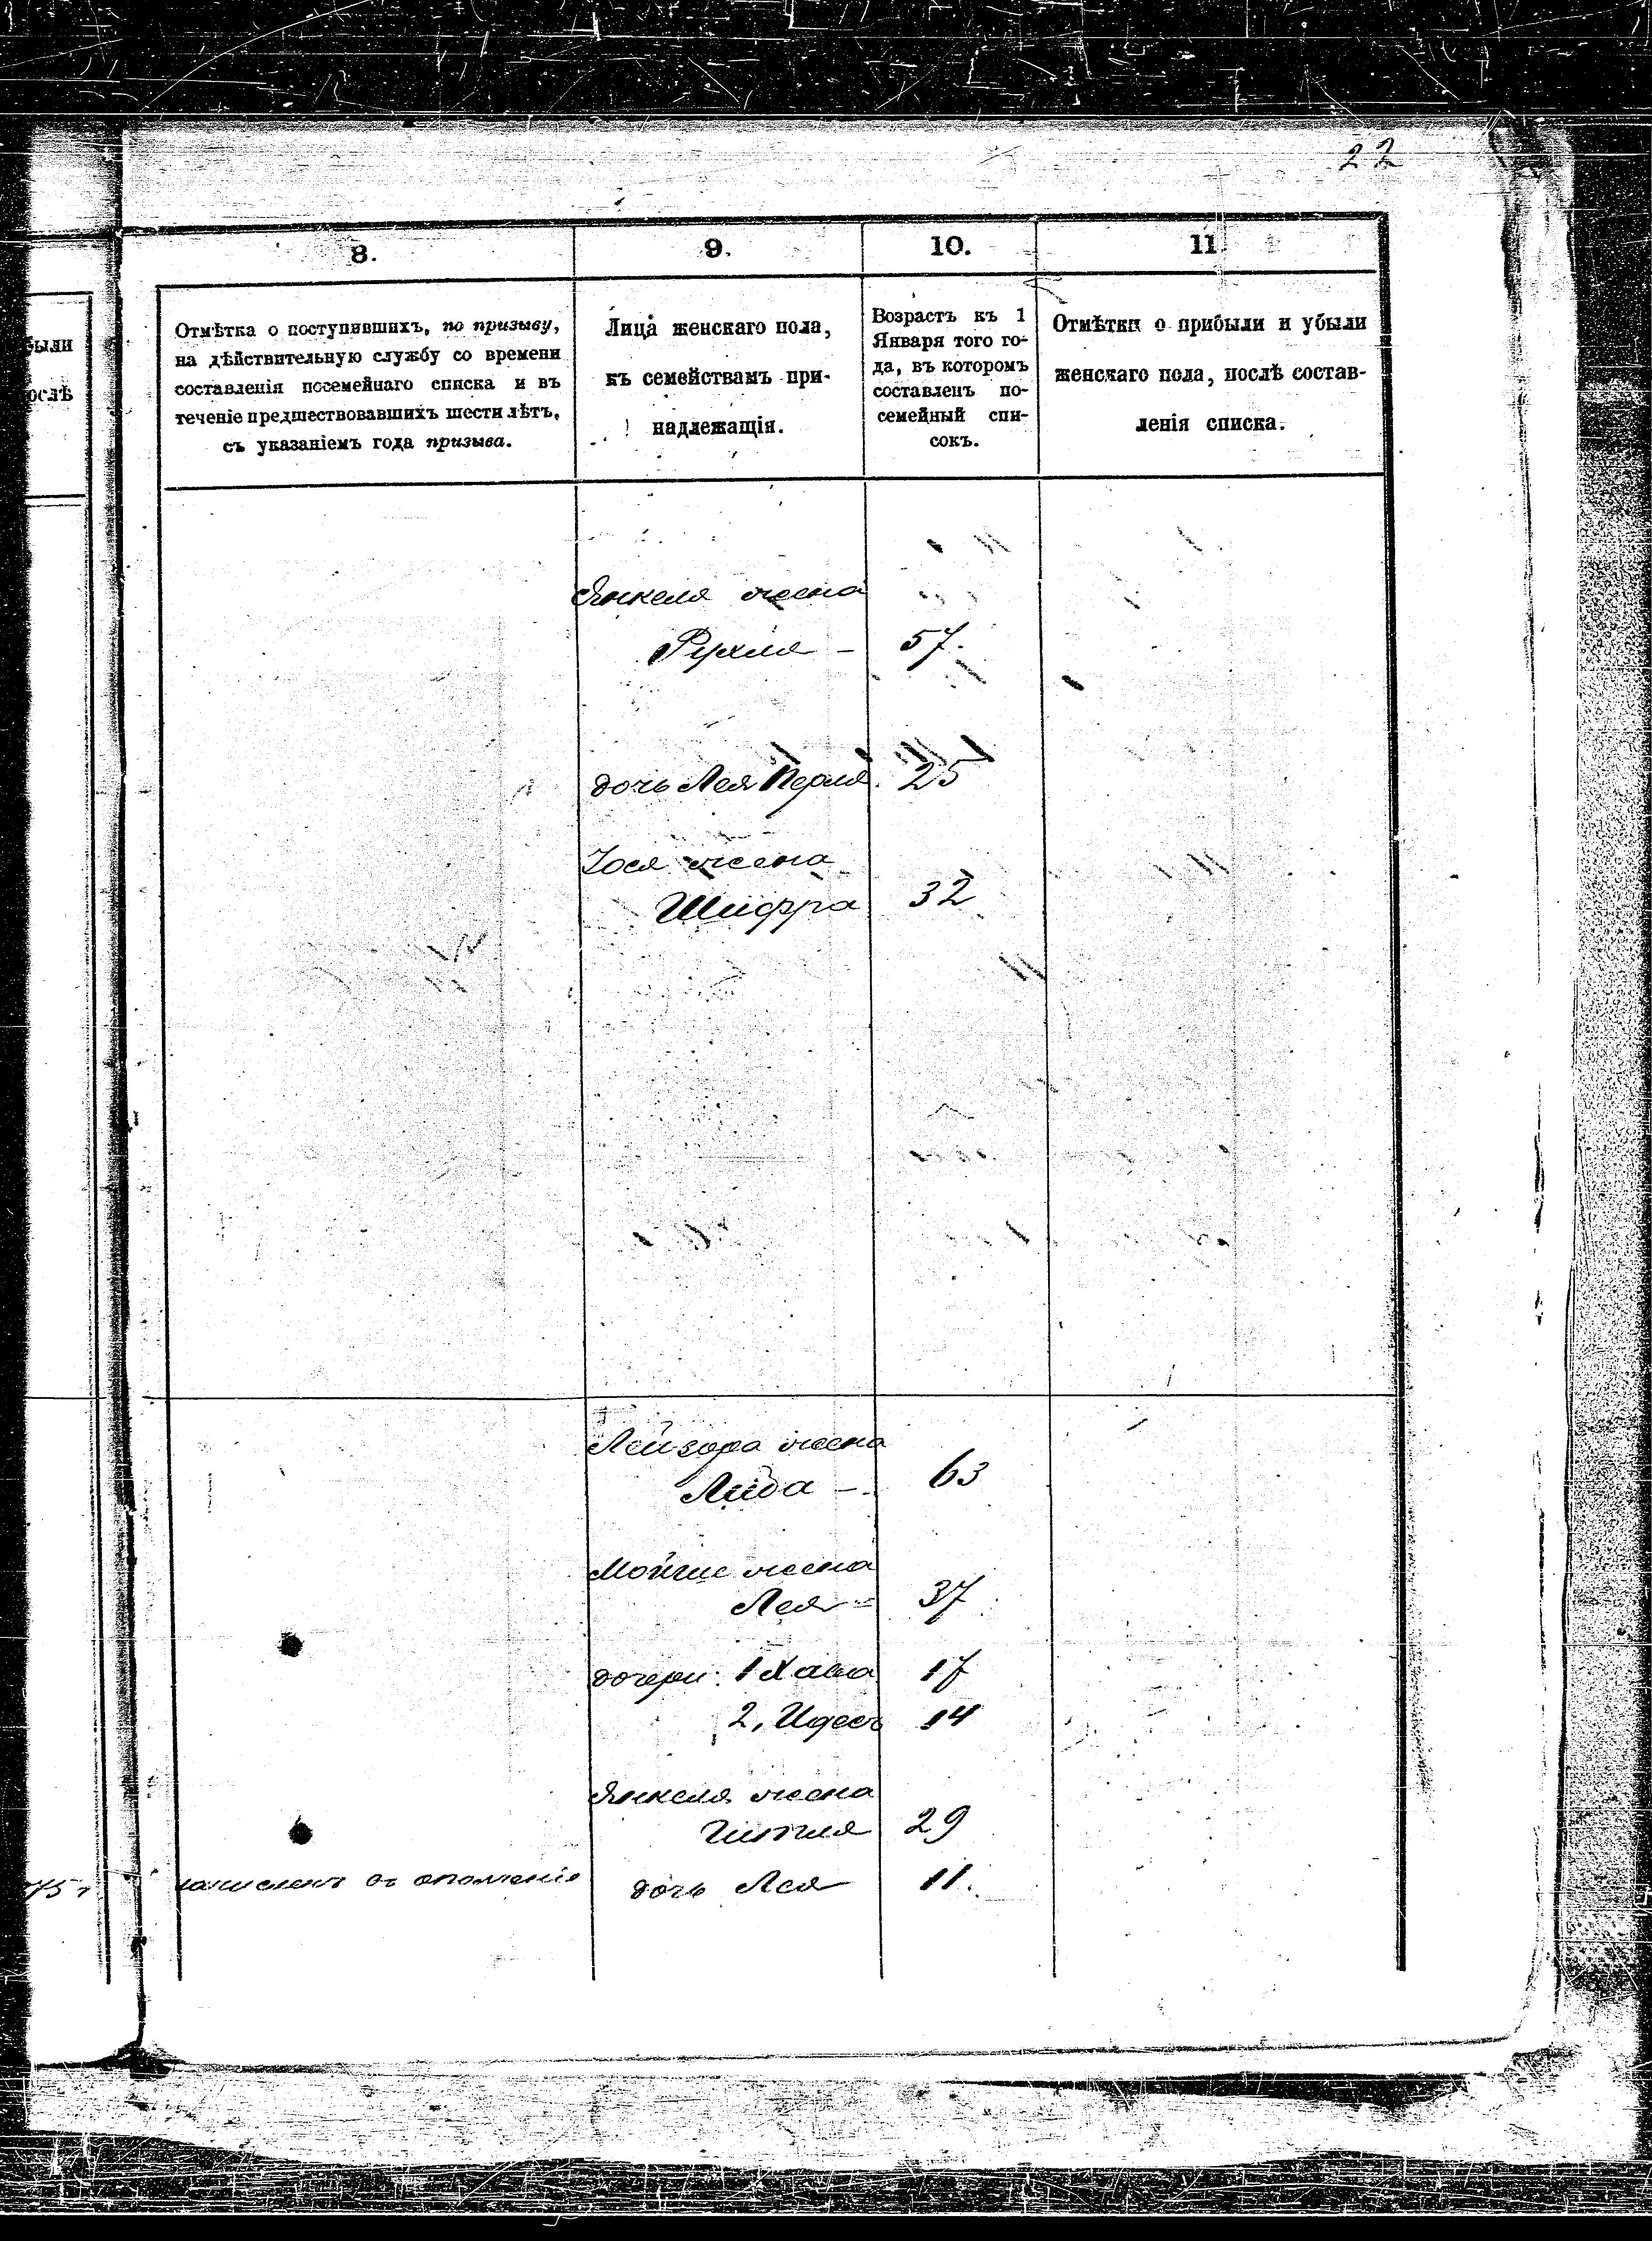 22
8.
9.
10.
11
Отмѣтка о поступившихъ, по призыву,
на дѣйствительную службу со времени
составленія посемейнаго списка и въ
теченіе предшествовавшихъ шести лѣтъ,
съ указаніемъ года призыва.
Лица женскаго пола,
къ семействамъ при-
надлежащія.
Возрастъ къ 1
Января того го-
да, въ которомъ
составленъ по-
семейный спи-
сокъ.
Отмѣтки о прибыли и убыли
женскаго пола, послѣ состав-
ленія списка.
были
ослѣ
Янкеля жена
Рухля – 57.
дочь Лея Перля. 25
Іося жена
Шифра 32
Лейзора жена
Либа – 63
Мойше жена
Лея 37
дочери: 1 Хава 17
2, Идесъ 14
Янкеля жена
Гитля 29
зачисленъ въ ополченіе
дочь Лея 11.